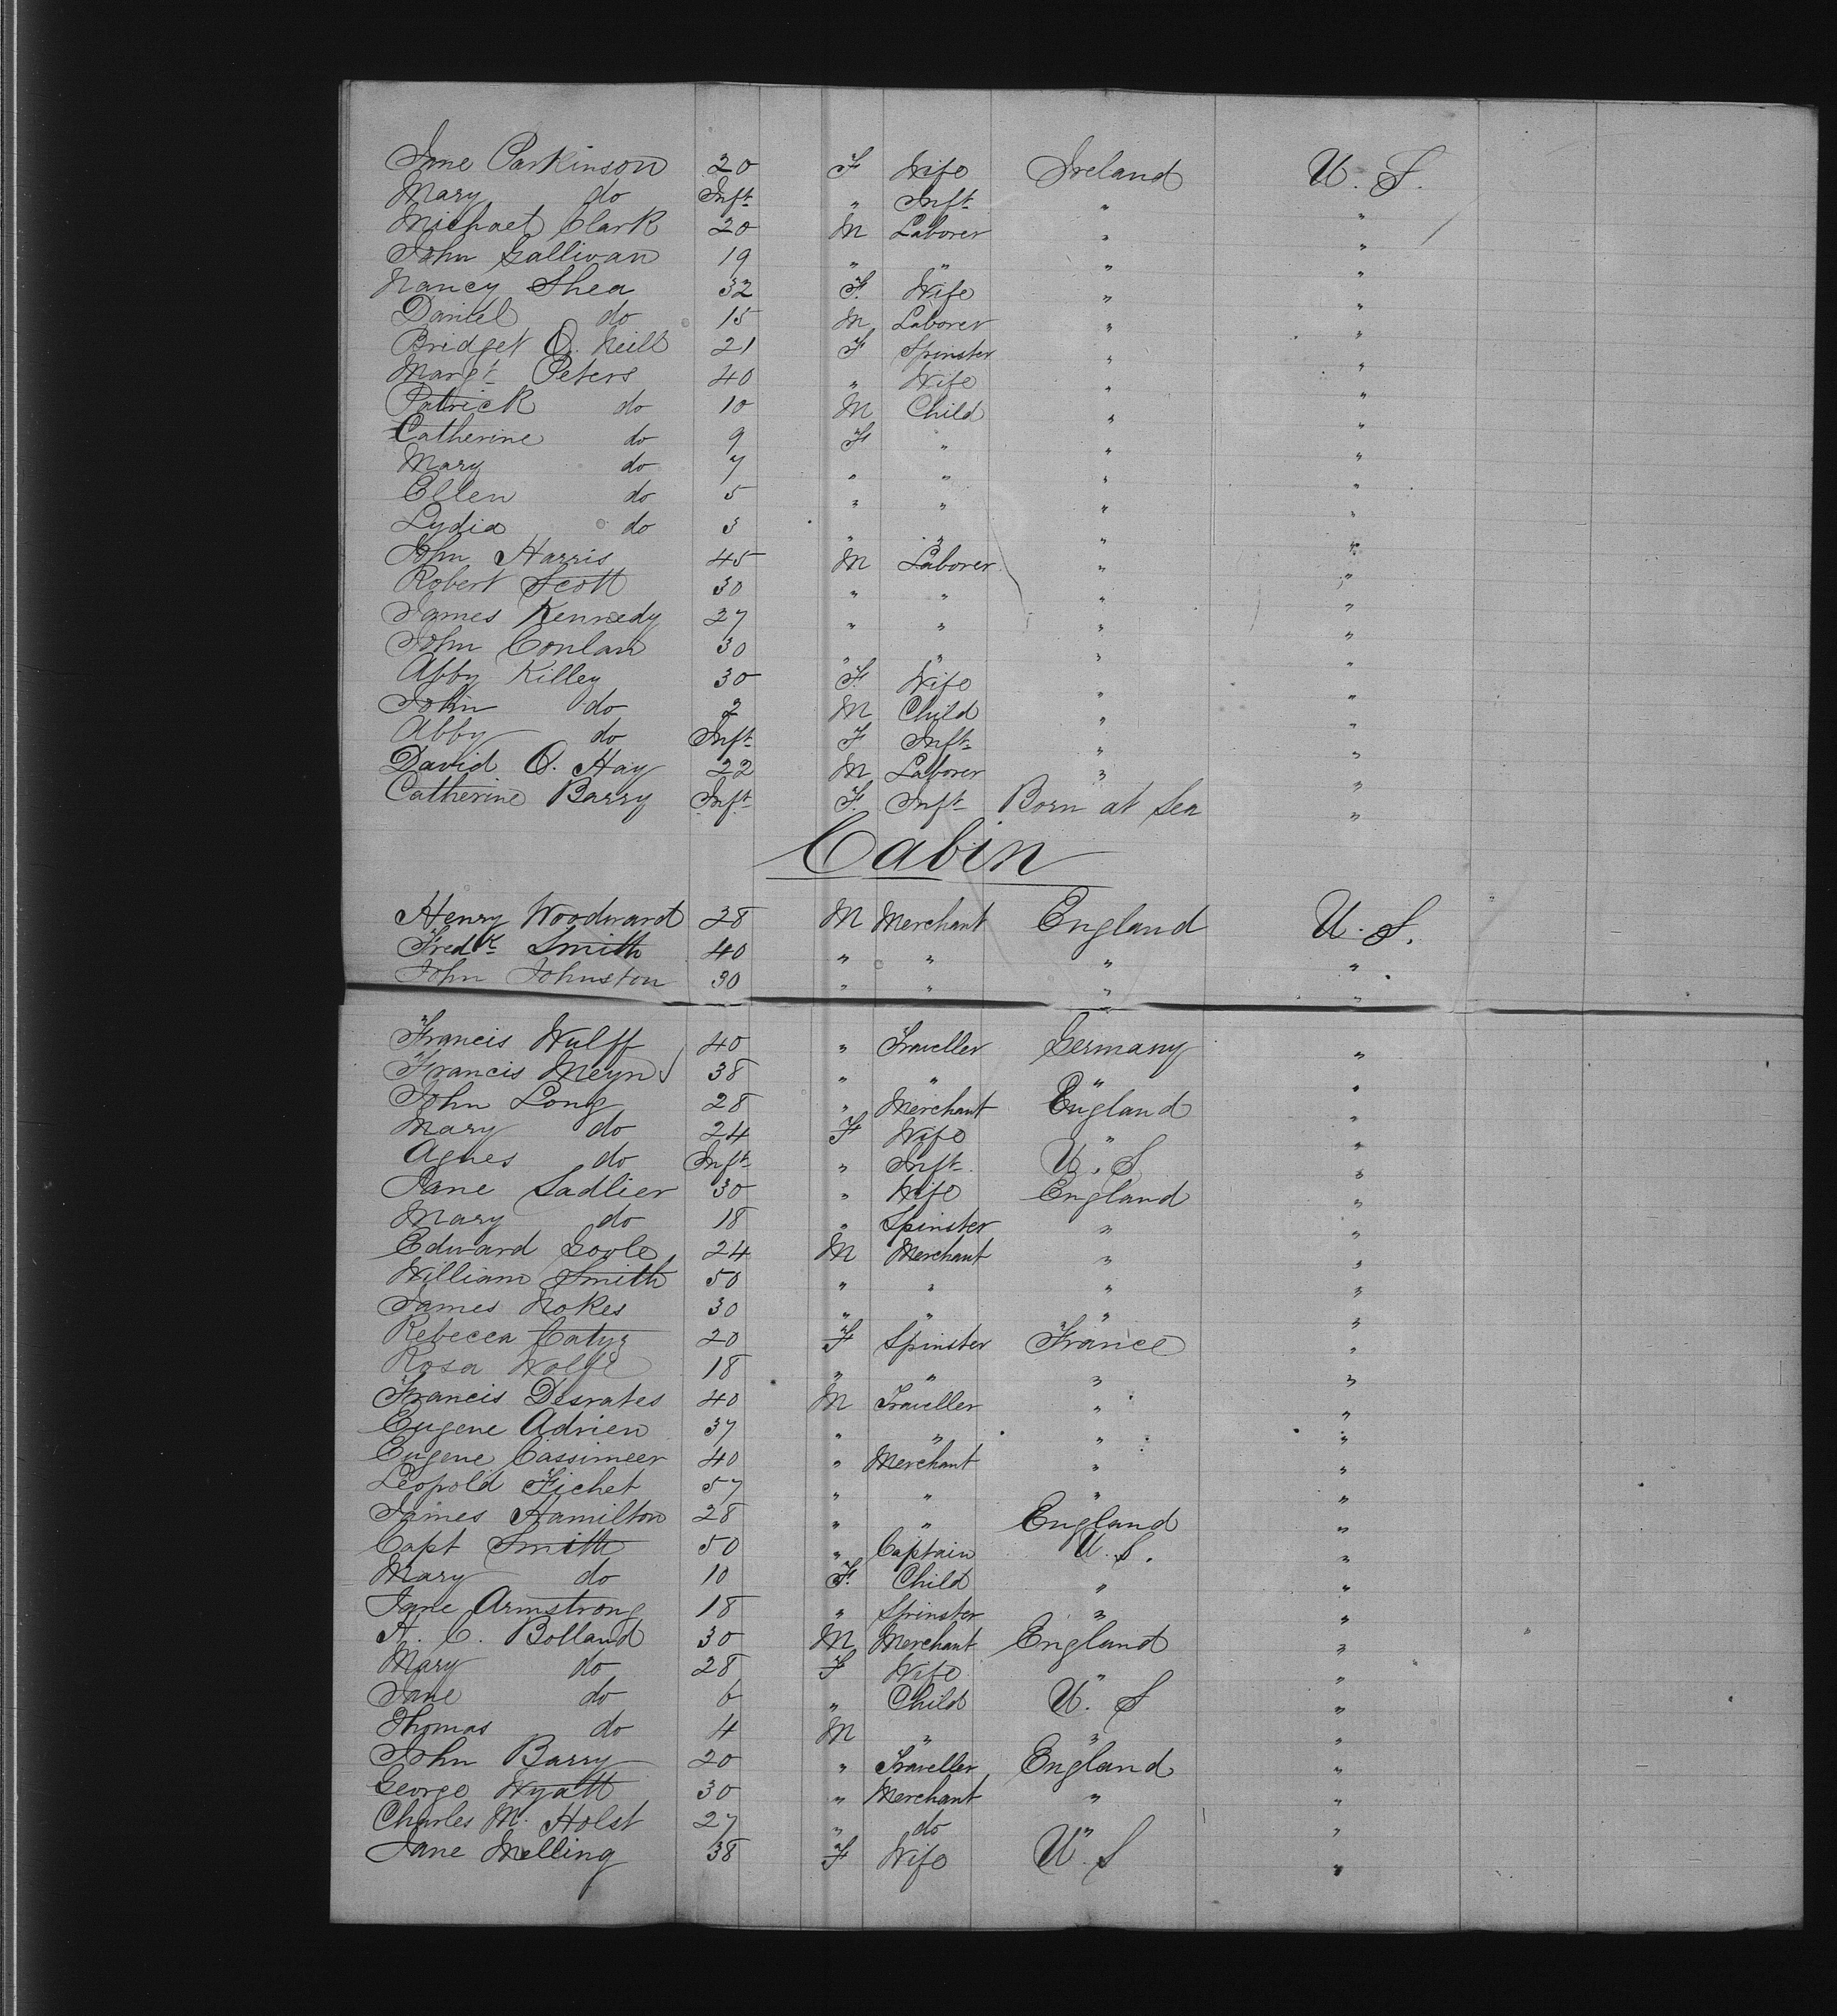 Jane Parkinson 20 F Wife Ireland U. S.
Mary do Inft " Inft " "
Michael Clark 20 M Laborer " "
John Gallivan 19 " " " "
Nancy Shea 32 F. Wife " "
Daniel do 15 M Laborer " "
Bridget O. Neill 21 F Spinster " "
Margt Peters 40 " Wife " "
Patrick do 10 M Child " "
Catherine do 9 F " " "
Mary do 7 " " " "
Ellen do 5 " " " "
Lydia do 3 " " " "
John Harris 45 M Laborer " "
Robert Scott 30 " " " "
James Kennedy 27 " " " "
John Conlan 30 " " " "
Abby Killey 30 F. Wife " "
John do 2 M Child " "
Abby do Inft F Inft " "
David O. Hay 22 M Laborer " "
Catherine Barry Inft F. Inft Born at Sea "
Cabin
Henry Woodward 28 M Merchant England U. S.
Fredk Smith 40 " " " "
John Johnston 30 " " " "
Francis Wulff 40 " Traveller Germany "
Francis Meyn 38 " " " "
John Long 28 " Merchant England "
Mary do 24 F Wife " "
Agnes do Inft " Inft U. S "
Jane Sadlier 30 " Wife England "
Mary do 18 " Spinster " "
Edward Goole 24 M Merchant " "
William Smith 50 " " " "
James Nokes 30 " " " "
Rebecca 20 F Spinster France "
Rosa Wolfe 18 " " " "
Francis Desrates 40 M Traveller " "
Eugene Adrien 37 " " " "
Eugene Cassimeer 40 " Merchant " "
Leopold Fichet 57 " " " "
James Hamilton 28 " " England "
Capt Smith 50 " Captain U. S. "
Mary do 10 F. Child " "
Jane Armstrong 18 " Spinster " "
H. C. Bolland 30 M Merchant England "
Mary do 28 F Wife " "
Jane do 6 " Child U. S "
Thomas do 4 M " " "
John Barry 20 " Traveller England "
George Wyatt 30 " Merchant " "
Charles M. Holst 27 " do " "
Jane Melling 38 F Wife U. S "